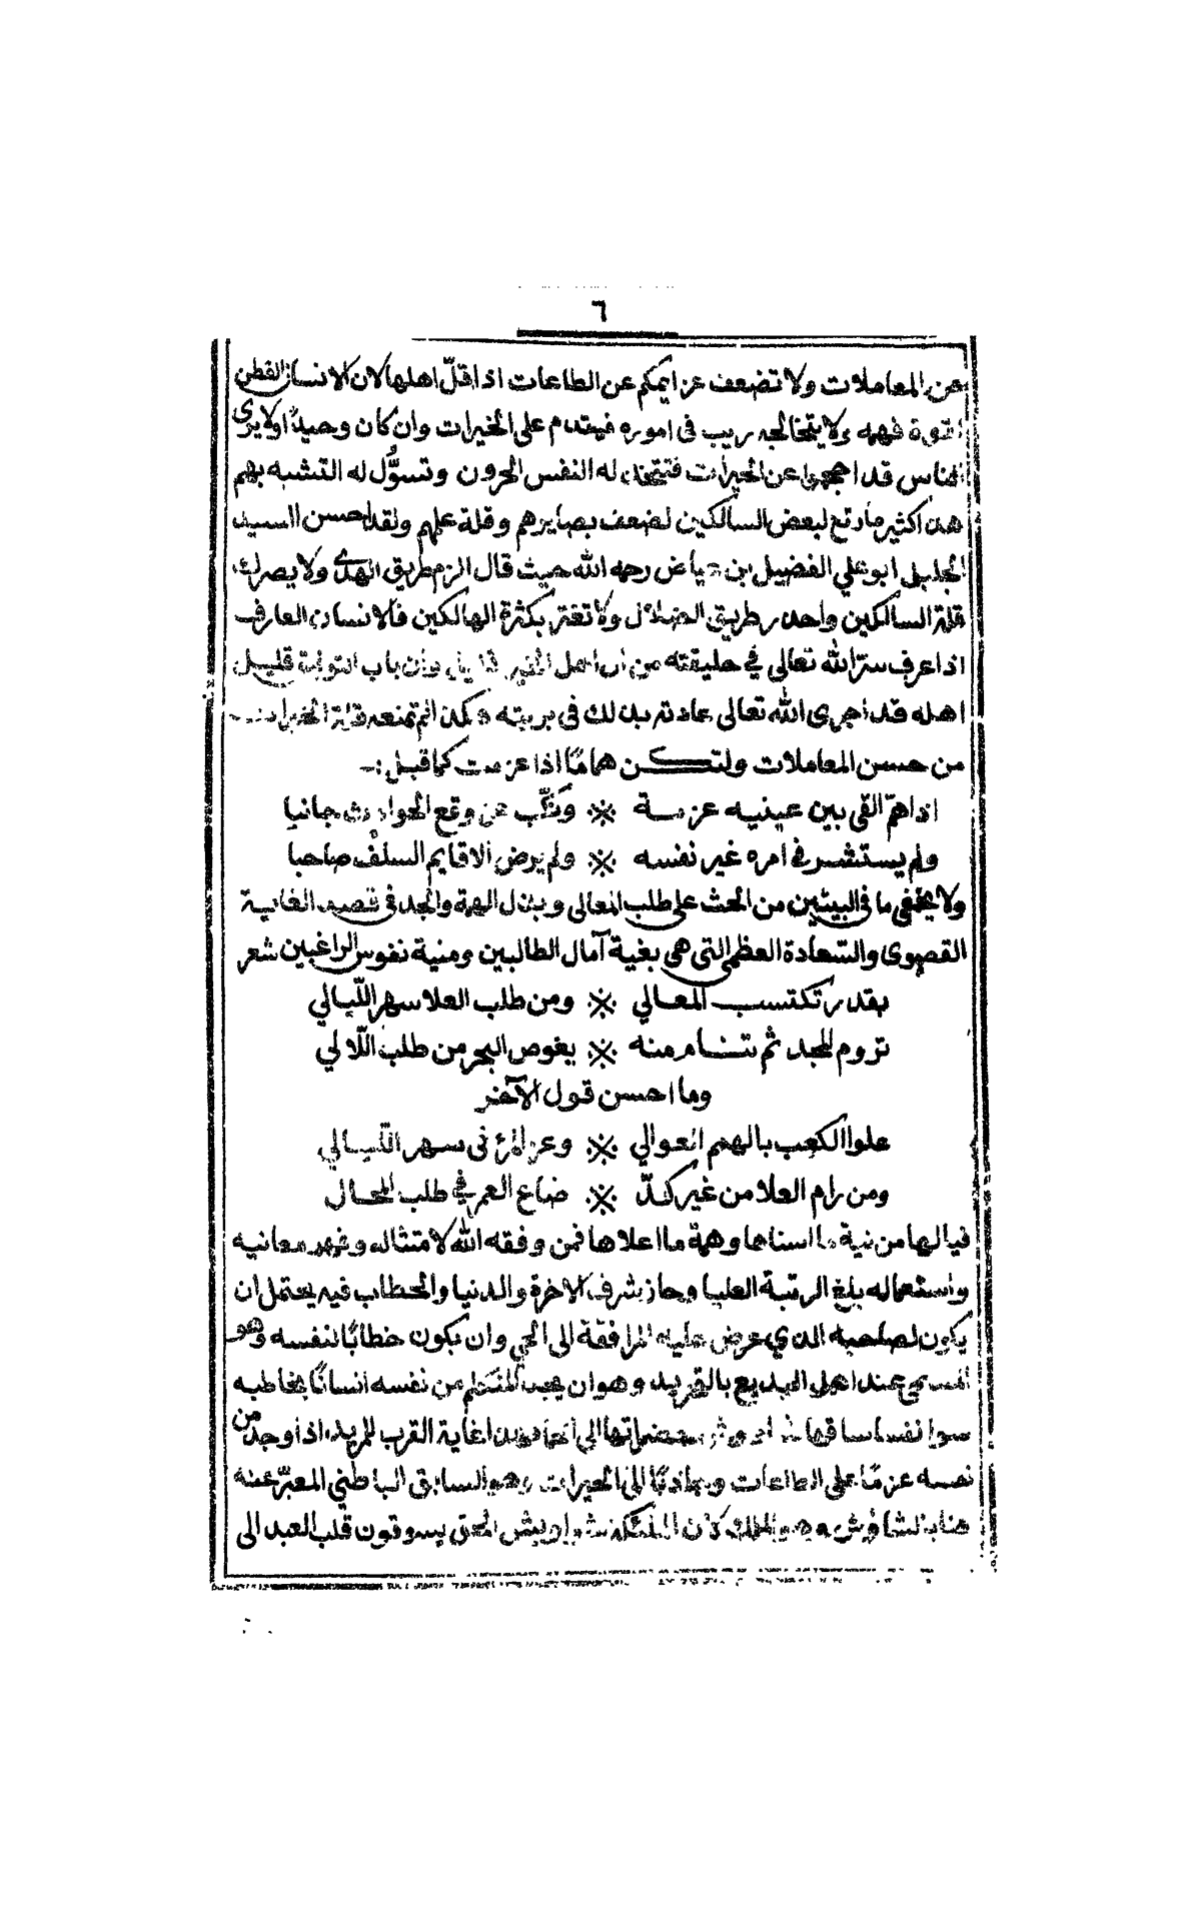 ٦
عن المعاملات ولا تضعف عزايمكم عن الطاعات اذا قلّ اهلها لان الانسان الفطن
لقوة فهمه ولا يتخالجه ريب فى اموره فيقدم على الخيرات وان كان وحيدًا ولا يرى
الناس قد احجموا عن الخيرات فتتخذل له النفس الحرون وتسوُّل له التشبه بهم
هذا كثير ما وقع لبعض السالكين لضعف بصايرهم وقلة علمهم ولقد احسن السيد
الجليل ابو علي الفضيل ابن عياض رحمه الله حيث قال الزم طريق الهدى ولا يضرك
قلة السالكين واحذر طريق الضلال ولا تغتر بكثرة الهالكين فالانسان العارف
اذا عرف سرّ الله تعالى في خليقته من ان اهل الخير وان باب التوبة قليل
اهله قد اجرى الله تعالى عادته بذلك فى بريته لم تمنعه قلة
من حسن المعاملات ولتكن همامًا اذا عزمت كما قيل :ـ
اذا همّ القى بين عينيه عزمة ※ ونكّب عن وقع الحوادث جانبا
ولم يستشر فى امره غير نفسه ※ ولم يرض الا قايم السلف صاحبا
ولا يخفى ما فى البيتين من الحث على طلب المعالى وبذل الهمة والجد فى قصد الغاية
القصوى والسعادة العظمى التى هى بغية آمال الطالبين ومنية نفوس الراغبين شعر
بقدر تكتسب المعالي ※ ومن طلب العلا سهر اللّيالي
تروم المجد ثم تنام منه ※ يغوص البحر من طلب اللّالي
وما احسن قول الآخر
علوا الكعب بالهمم العوالي ※ وعز المرء فى سهر اللّيالي
ومن رام العلا من غير كدّ ※ ضاع العمر في طلب المحال
فيالها من نية ما اسناها وهمة ما اعلاها فمن وفقه الله لامتثاله وفهم معانيه
واستعماله بلغ الرتبة العليا وحاز شرف الاخرة والدنيا والخطاب فيه يحتمل ان
يكون لصاحبه الذي عرض عليه المرافقة الى الحي وان يكون خطابًا لنفسه وهو
المسمى عند اهل البديع بالتجريد وهو ان يجرد المتكلم من نفسه انسانًا يخاطبه
غاية القرب للمريد اذا وجد من
نفسه عزمًا على الطاعات الى الخيرات وهو السابق الباطني المعبّر عنه
هنا وهو الملك الحق يسوقون قلب العبد الى